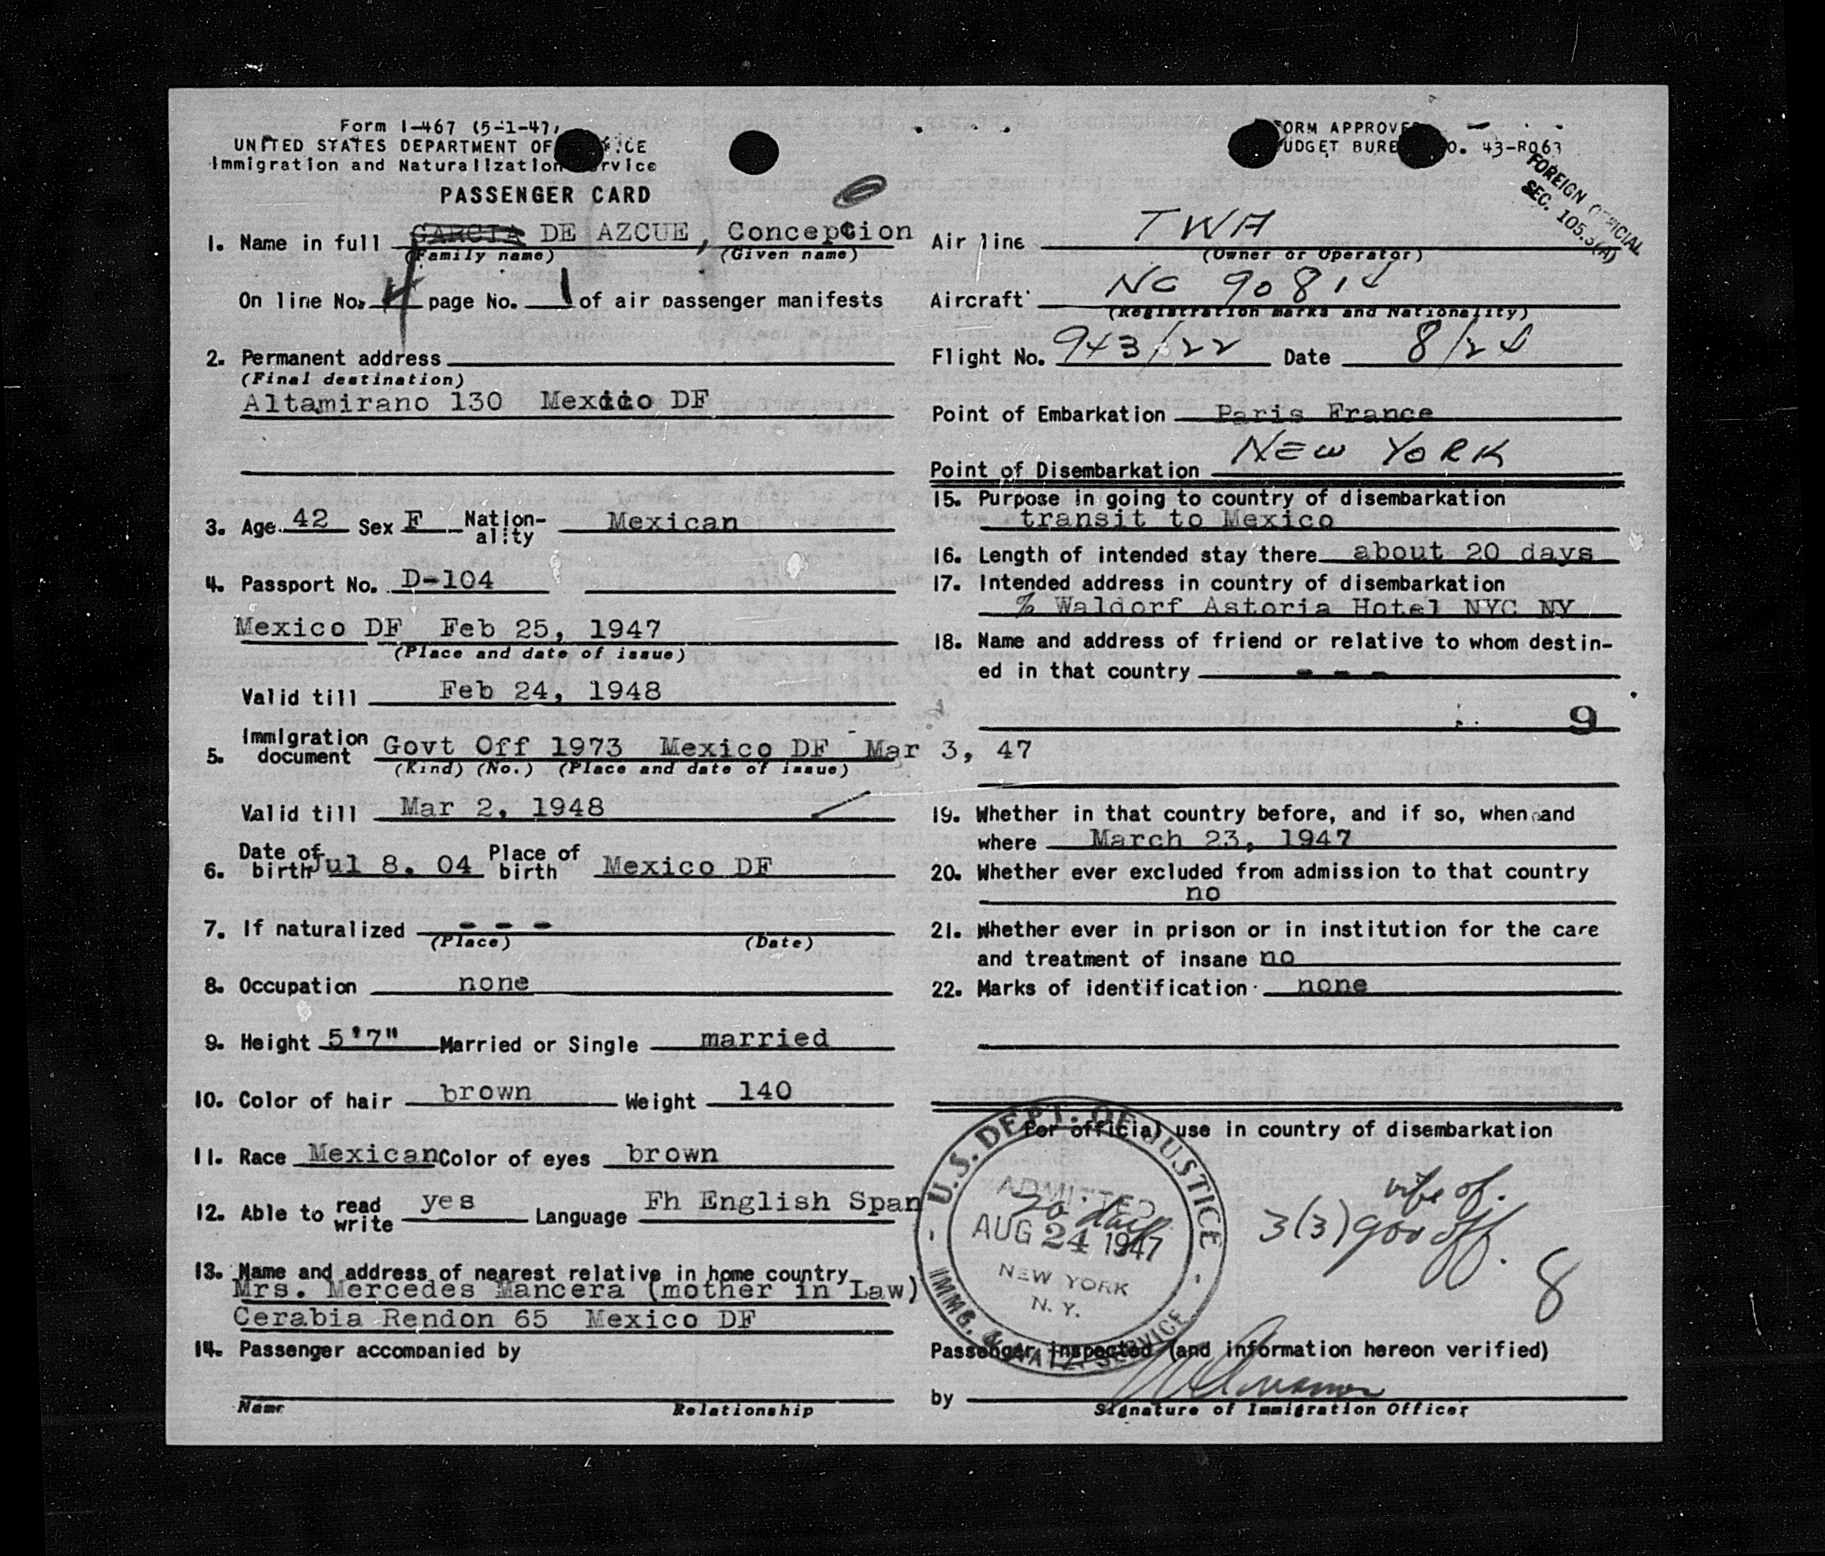 Form I-467 (5-1-47)
UNITED STATES DEPARTMENT OF
Immigration and Naturalization
PASSENGER CARD
1. Name in full GARCIA DE AZCUE, Concepcion
(Family name) (Given name)
On line No. 4 page No. 1 of air passenger manifests
2. Permanent address
(Final destination)
Altamirano 130 Mexico DF
3. Age 42 Sex F Nation-ality Mexican
4. Passport No. D-104
Mexico DF Feb 25, 1947
(Place and date of issue)
Valid till Feb 24, 1948
5. Immigration document Govt Off 1973 Mexico DF Mar 3, 47
(Kind) (No.) (Place and date of issue)
Valid till Mar 2, 1948
6. Date of birth Jul 8, 04 Place of birth Mexico DF
7. If naturalized - - -
(Place) (Date)
8. Occupation none
9. Height 5'7" Married or Single married
10. Color of hair brown Weight 140
11. Race Mexican Color of eyes brown
12. Able to read write yes Language Fh English Span
13. Name and address of nearest relative in home country
Mrs. Mercedes Mancera (mother in Law)
Cerabia Rendon 65 Mexico DF
14. Passenger accompanied by
Name Relationship
FORM APPROVED
BUDGET BUREAU NO. 43-R063
FOREIGN OFFICIAL
SEC. 105.3(A)
Air line TWA
(Owner or Operator)
Aircraft NC 90814
(Registration marks and Nationality)
Flight No. 943/22 Date 8/24
Point of Embarkation Paris France
Point of Disembarkation NEW YORK
15. Purpose in going to country of disembarkation
transit to Mexico
16. Length of intended stay there about 20 days
17. Intended address in country of disembarkation
% Waldorf Astoria Hotel NYC NY
18. Name and address of friend or relative to whom destin-
ed in that country - - -
9
19. Whether in that country before, and if so, when and
where March 23, 1947
20. Whether ever excluded from admission to that country
no
21. Whether ever in prison or in institution for the care
and treatment of insane no
22. Marks of identification none
For official use in country of disembarkation
U.S. DEPT. OF JUSTICE
ADMITTED
20 days
AUG 24 1947
NEW YORK
N. Y.
IMMG. & NATZ. SERVICE
wife of
3(3) gov off.
8
Passenger inspected (and information hereon verified)
by
Signature of Immigration Officer